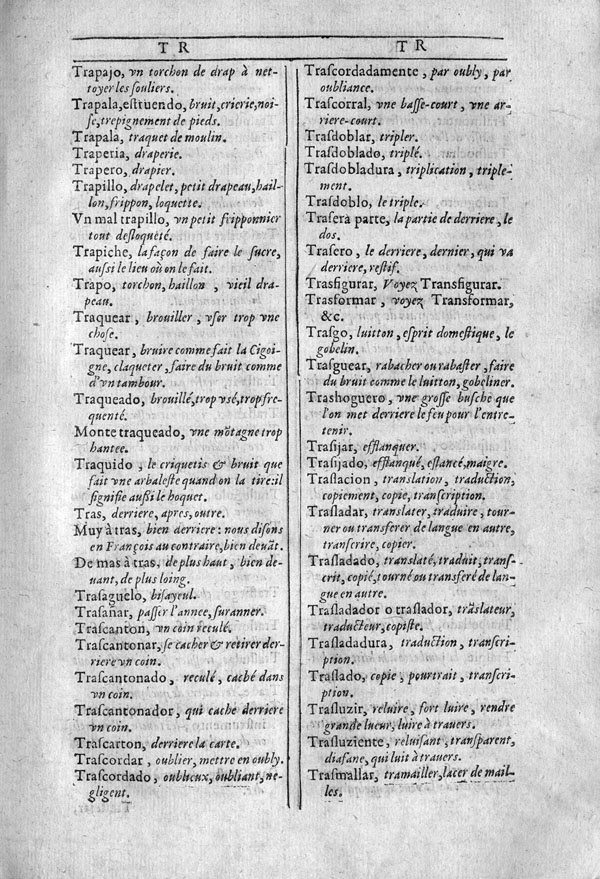 T R
Trapajo, vn torchon de drap à net-
toyer les souliers.
Trapala, estruendo, bruit, crierie, noi-
se, trepignement de pieds.
Trapala, traquet de moulin.
Traperia, draperie.
Trapero, drapier.
Trapillo, drapelet, petit drapeau, hail-
lon, frippon, loquette.
Vn mal trapillo, vn petit fripponnier
tout desloqueté.
Trapiche, la façon de faire le sucre,
aussi le lieu où on le fait.
Trapo, torchon, haillon, vieil dra-
peau.
Traquear, brouiller, vser trop vne
chose.
Traquear, bruire comme fait la Cigoi-
gne, claqueter, faire du bruit comme
d'vn tambour.
Traqueado, brouillé, trop vsé, trop fre-
quenté.
Monte traqueado, vne mõtagne trop
hantee.
Traquido, le criquetis & bruit que
fait vne arbaleste quand on la tire: il
signifie aussi le hoquet.
Tras, derriere, apres, outre.
Muy à tras, bien derriere: nous disons
en François au contraire, bien deuãt.
De mas à tras, de plus haut, bien de-
uant, de plus loing.
Trasaguelo, bisayeul.
Trasañar, passer l'annee, suranner.
Trascanton, vn coin reculé.
Trascantonar, se cacher & retirer der-
riere vn coin.
Trascantonado, reculé, caché dans
vn coin.
Trascantonador, qui cache derriere
vn coin.
Trascarton, derriere la carte.
Trascordar, oublier, mettre en oubly.
Trascordado, oublieux, oubliant, ne-
gligent.
T R
Trascordadamente, par oubly, par
oubliance.
Trascorral, vne basse-court, vne ar-
riere-court.
Trasdoblar, tripler.
Trasdoblado, triplé.
Trasdobladura, triplication, triple-
ment.
Trasdoblo, le triple.
Trasera parte, la partie de derriere, le
dos.
Trasero, le derriere, dernier, qui va
derriere, restif.
Trasfigurar, Voyez Transfigurar.
Trasformar, voyez Transformar,
&c.
Trasgo, luitton, esprit domestique, le
gobelin.
Trasguear, rabacher ou rabaster, faire
du bruit comme le luitton, gobeliner.
Trashoguero, vne grosse busche que
l'on met derriere le feu pour l'entre-
tenir.
Trasijar, efflanquer.
Trasijado, efflanqué, eslancé, maigre.
Traslacion, translation, traduction,
copiement, copie, transcription.
Trasladar, translater, traduire, tour-
ner ou transferer de langue en autre,
transcrire, copier.
Trasladado, translaté, traduit, trans-
crit, copié, tourné ou transferé de lan-
gue en autre.
Trasladador o traslador, trãslateur,
traducteur, copiste.
Trasladadura, traduction, transcri-
ption.
Traslado, copie, pourtrait, transcri-
ption.
Trasluzir, reluire, fort luire, rendre
grande lueur, luire à trauers.
Trasluziente, reluisant, transparent,
diafane, qui luit à trauers.
Trasmallar, tramailler, lacer de mail-
les.